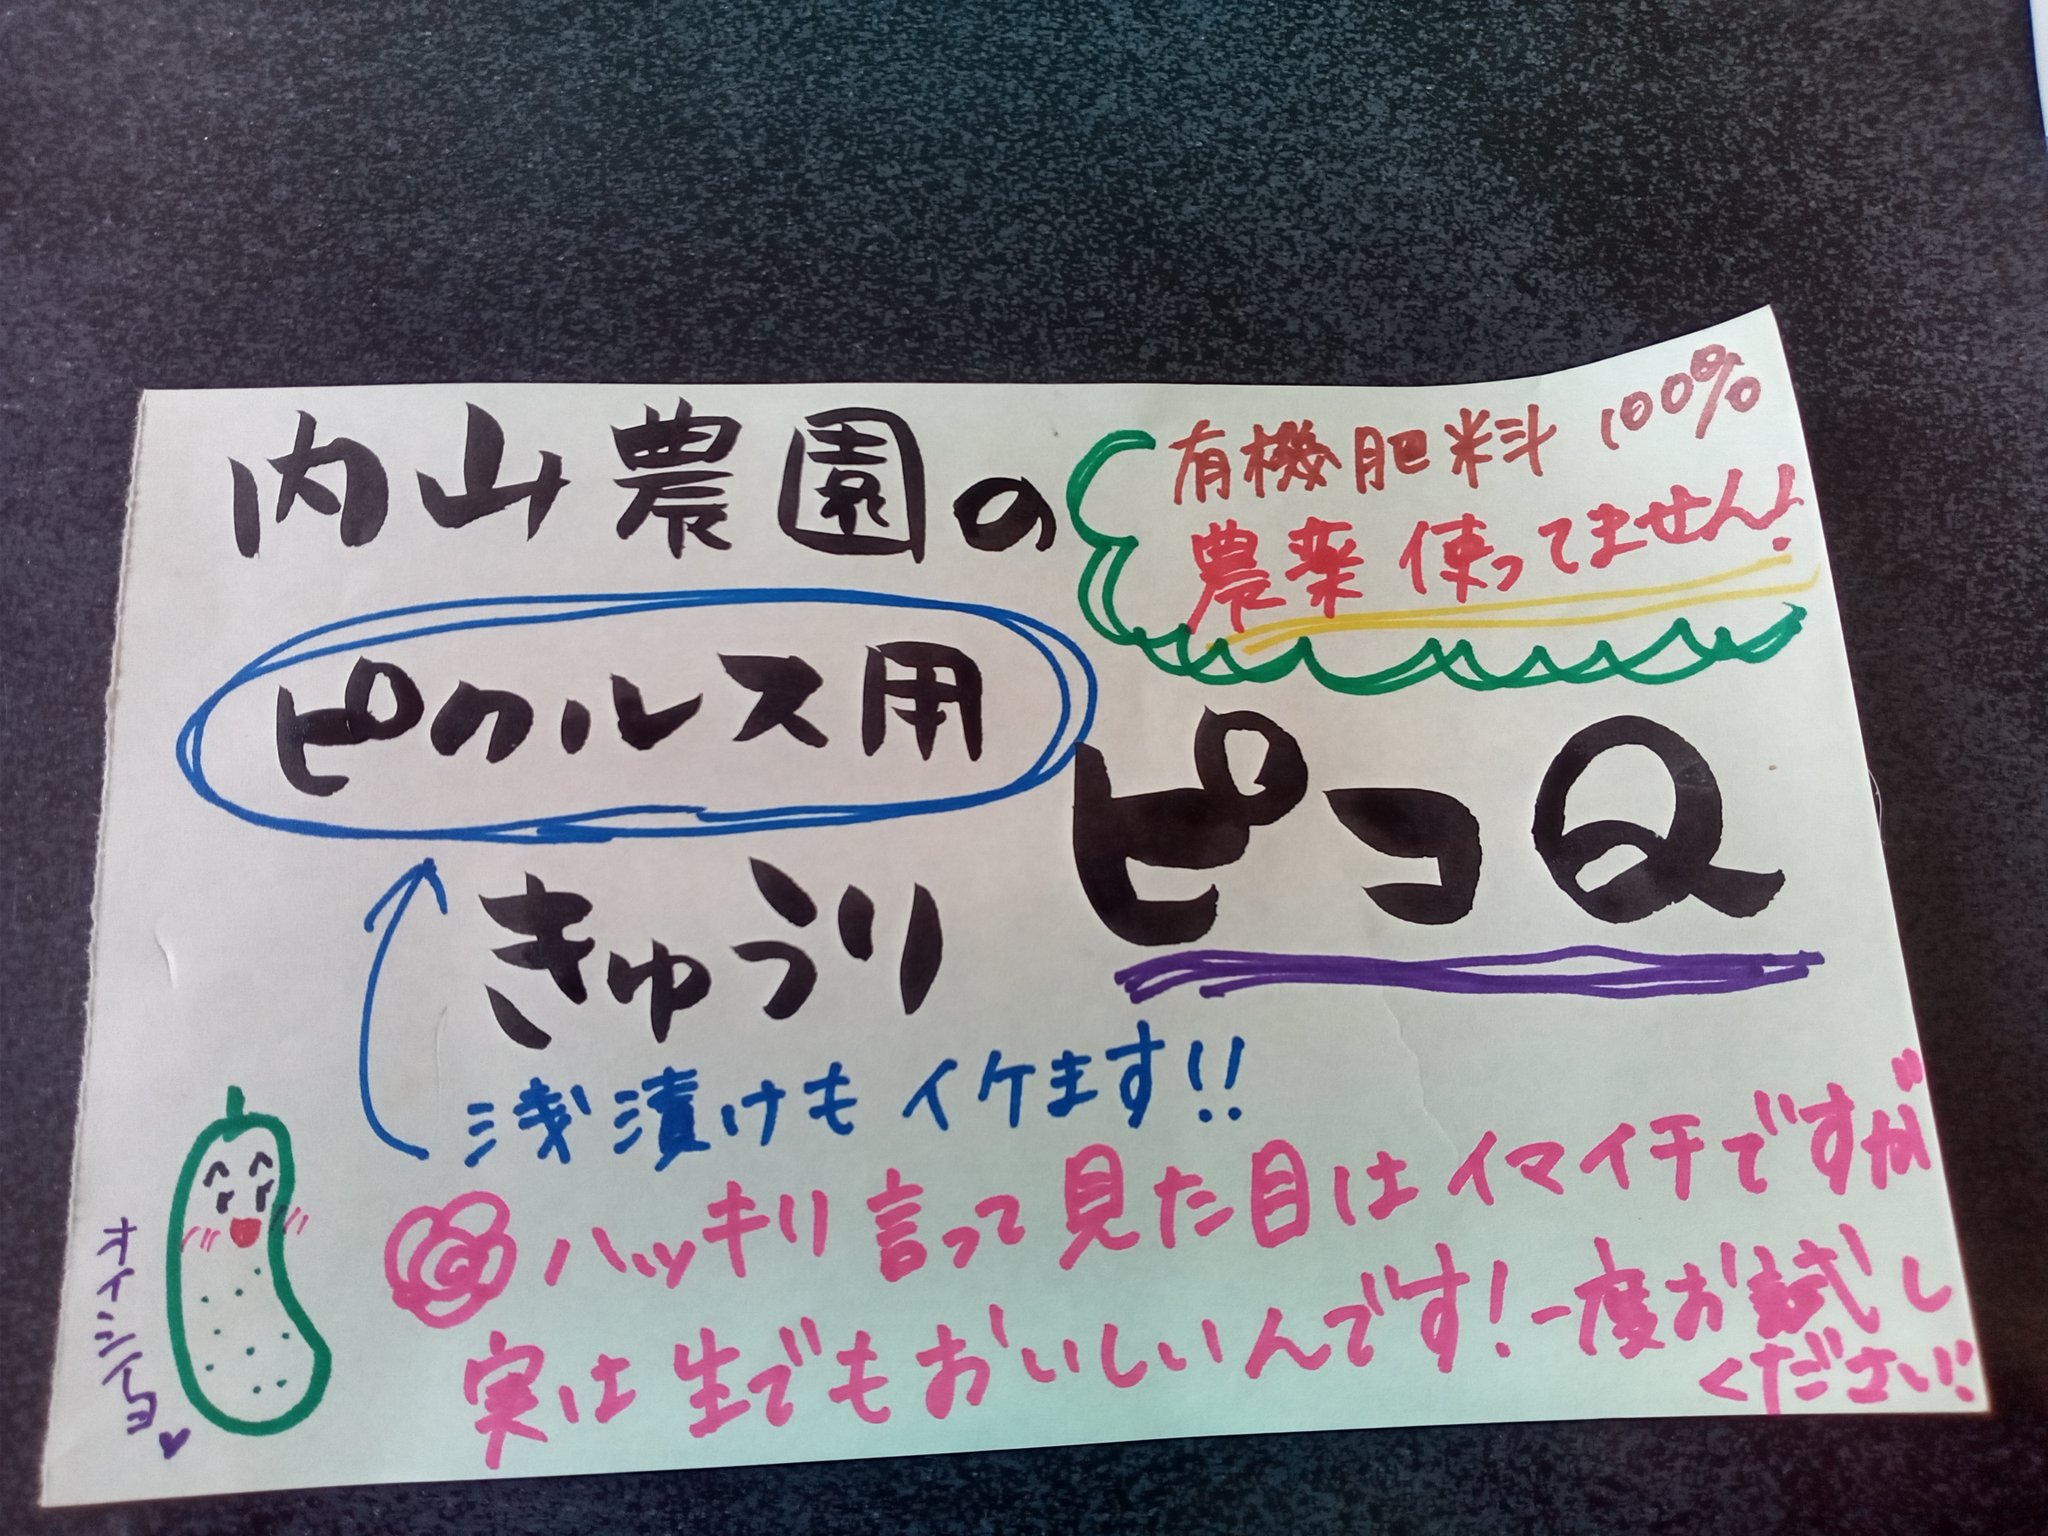 内山農園の
有機肥料 100%
農薬 使ってません!
ピクルス用
ピコQ
きゅうり
浅漬けも イケます!!
ハッキリ言って見た目はイマイチですが
実は生でもおいしいんです!一度お試し
ください!
オイシイヨ♥